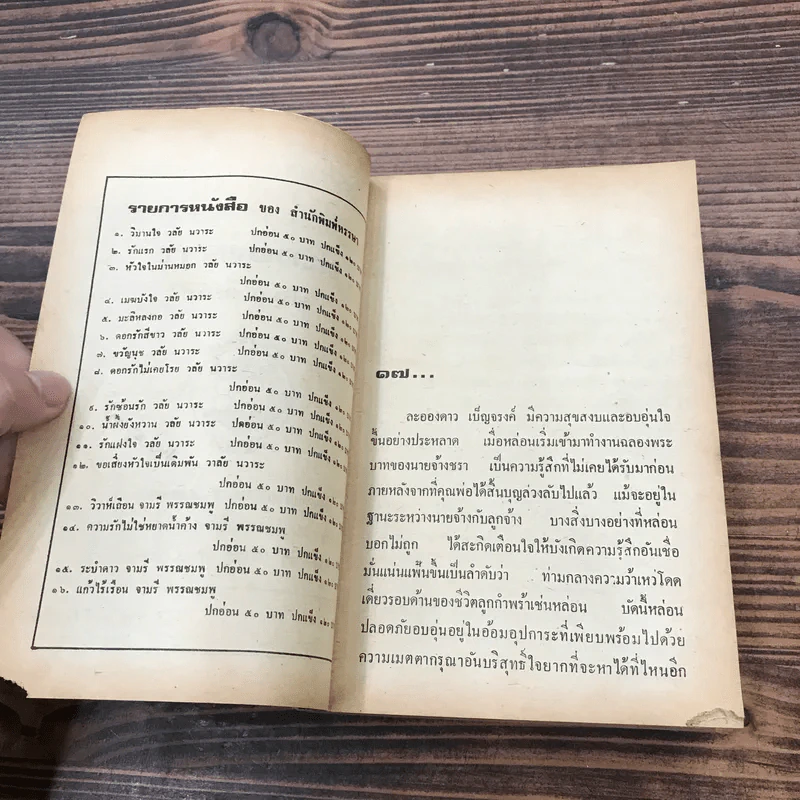 รายการหนังสือ ของ สำนักพิมพ์พรรษา
๑. วิมานใจ วลัย นวาระ ปกอ่อน ๕๐ บาท ปกแข็ง ๑๒๐
๒. รักแรก วลัย นวาระ ปกอ่อน ๕๐ บาท ปกแข็ง ๑๒๐
๓. หัวใจในม่านหมอก วลัย นวาระ
ปกอ่อน ๕๐ บาท ปกแข็ง ๑๒๐
๔. เมฆบังใจ วลัย นวาระ ปกอ่อน ๕๐ บาท ปกแข็ง ๑๒๐
๕. มะลิหลงกอ วลัย นวาระ ปกอ่อน ๕๐ บาท ปกแข็ง ๑๒๐
๖. ดอกรักสีขาว วลัย นวาระ ปกอ่อน ๕๐ บาท ปกแข็ง ๑๒๐
๗. ขวัญนุช วลัย นวาระ ปกอ่อน ๕๐ บาท ปกแข็ง ๑๒๐
๘. ดอกรักไม่เคยโรย วลัย นวาระ
ปกอ่อน ๕๐ บาท ปกแข็ง ๑๒๐
๙. รักซ้อนรัก วลัย นวาระ ปกอ่อน ๕๐ บาท ปกแข็ง ๑๒๐
๑๐. น้ำผึ้งยังหวาน วลัย นวาระ ปกอ่อน ๕๐ บาท ปกแข็ง ๑๒๐
๑๑. รักแฝงใจ วลัย นวาระ ปกอ่อน ๕๐ บาท ปกแข็ง ๑๒๐
๑๒. ขอเสี่ยงหัวใจเป็นเดิมพัน วาลัย นวาระ
ปกอ่อน ๕๐ บาท ปกแข็ง ๑๒๐
๑๓. วิวาห์เถื่อน จามรี พรรณชมพู ปกอ่อน ๕๐ บาท ปกแข็ง ๑๒๐
๑๔. ความรักไม่ใช่หยาดน้ำค้าง จามรี พรรณชมพู
ปกอ่อน ๕๐ บาท ปกแข็ง ๑๒๐
๑๕. ระบำดาว จามรี พรรณชมพู ปกอ่อน ๕๐ บาท ปกแข็ง ๑๒๐
๑๖. แก้วไร้เรือน จามรี พรรณชมพู
ปกอ่อน ๕๐ บาท ปกแข็ง ๑๒๐
๑๗...
ละอองดาว เบ็ญจรงค์ มีความสุขสงบและอบอุ่นใจ
ขึ้นอย่างประหลาด เมื่อหล่อนเริ่มเข้ามาทำงานฉลองพระ
บาทของนายจ้างชรา เป็นความรู้สึกที่ไม่เคยได้รับมาก่อน
ภายหลังจากที่คุณพ่อได้สิ้นบุญล่วงลับไปแล้ว แม้จะอยู่ใน
ฐานะระหว่างนายจ้างกับลูกจ้าง บางสิ่งบางอย่างที่หล่อน
บอกไม่ถูก ได้สะกิดเตือนใจให้บังเกิดความรู้สึกอันเชื่อ
มั่นแน่นแฟ้นขึ้นเป็นลำดับว่า ท่ามกลางความว้าเหว่โดด
เดี่ยวรอบด้านของชีวิตลูกกำพร้าเช่นหล่อน บัดนี้หล่อน
ปลอดภัยอบอุ่นอยู่ในอ้อมอุปการะที่เพียบพร้อมไปด้วย
ความเมตตากรุณาอันบริสุทธิ์ใจยากที่จะหาได้ที่ไหนอีก